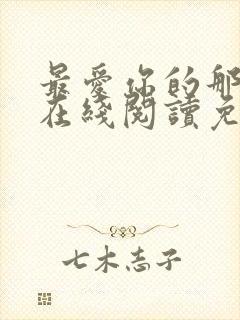 最愛你的那
在綫閱讀免
七木志子